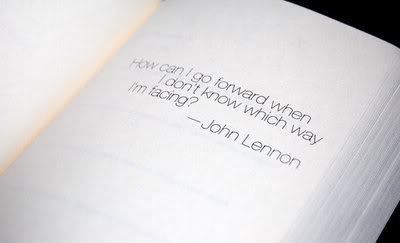 How can I go forward when
I don't know which way
I'm facing?
—John Lennon